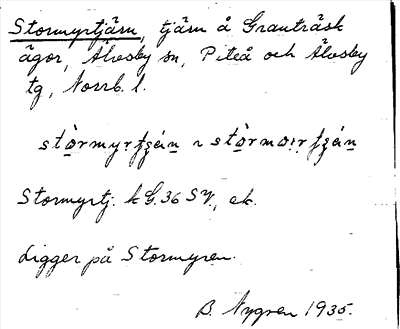 Stormyrtjärn, tjärn å Granträsk
ägor, Älvsby sn, Piteå och Älvsby
tg, Norrb. l.
Stormyrtj. k G. 36 SV, ek.
Ligger på Stormyren.
B. Nygren 1935.